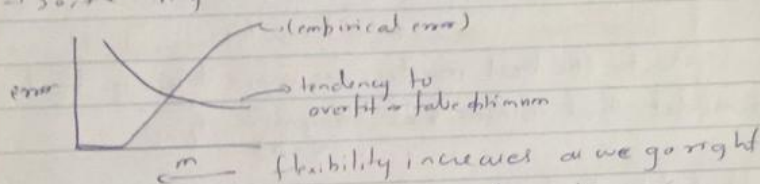 (empirical error)
error
tendency to
overfit or false optimum
m
flexibility increases as we go right